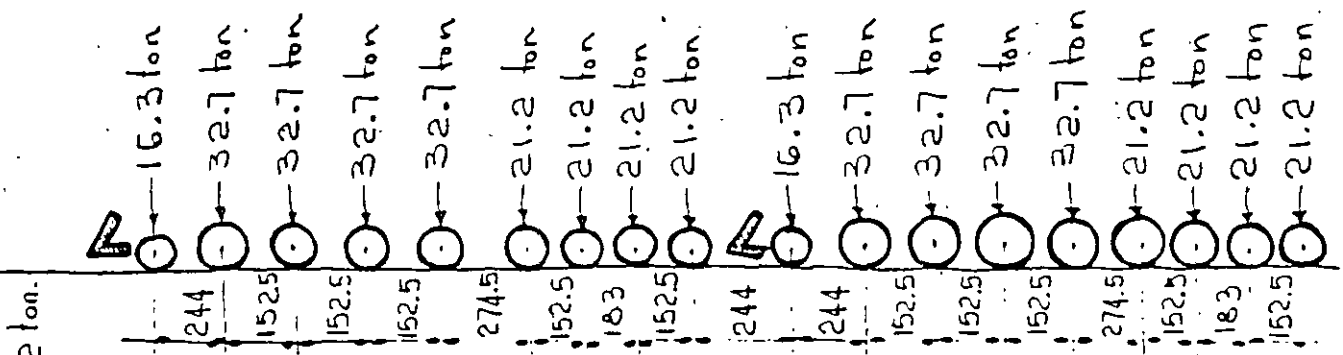 16.3 ton
32.7 ton
32.7 ton
32.7 ton
32.7 ton
21.2 ton
21.2 ton
21.2 ton
21.2 ton
16.3 ton
32.7 ton
32.7 ton
32.7 ton
32.7 ton
21.2 ton
21.2 ton
21.2 ton
21.2 ton
244
152.5
152.5
152.5
274.5
152.5
183
152.5
244
244
152.5
152.5
152.5
274.5
152.5
183
152.5
2 ton.